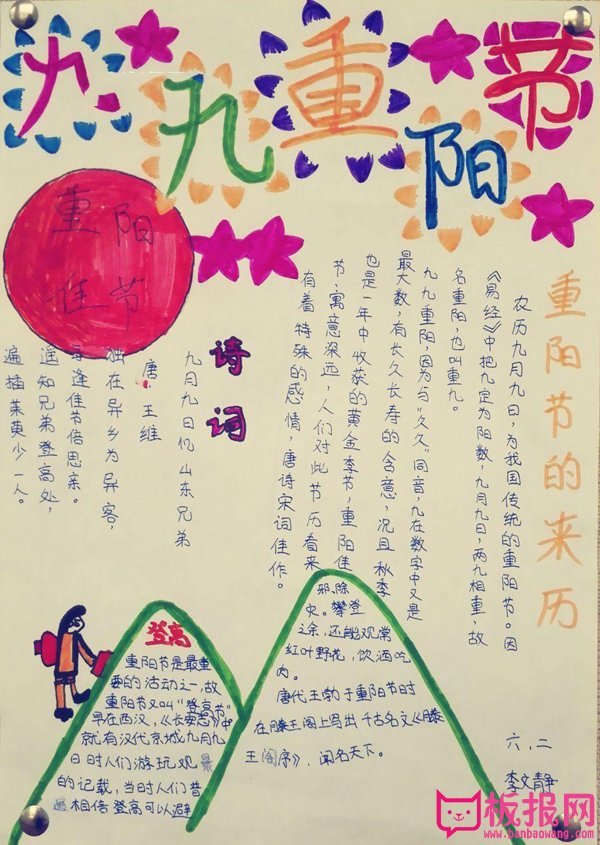 九九重阳节
重阳
佳节
重阳节的来历
农历九月九日,为我国传统的重阳节。因
《易经》中把九定为阳数,九月九日,两九相重,故
名重阳,也叫重九。
九九重阳,因为与“久久”同音,九在数字中又是
最大数,有长久长寿的含意,况且秋季
也是一年中收获的黄金季节,重阳佳
节,寓意深远,人们对此节历看来
有着特殊的感情,唐诗宋词佳作。
诗词
九月九日忆山东兄弟
唐 王维
独在异乡为异客,
每逢佳节倍思亲。
遥知兄弟登高处,
遍插茱萸少一人。
登高
重阳节是最重
要的活动之一,故
重阳节又叫“登高节”
早在西汉,《长安志》中
就有汉代京城九月九
日时人们游玩观景
的记载,当时人们普
遍相信登高可以避
邪、除
灾。攀登
之余,还能观赏
红叶野花,饮酒吃
肉。
唐代王勃于重阳节时
在滕王阁上写出千古名文《滕
王阁序》,闻名天下。
六、二
李文静
板报网
www.banbaowang.com